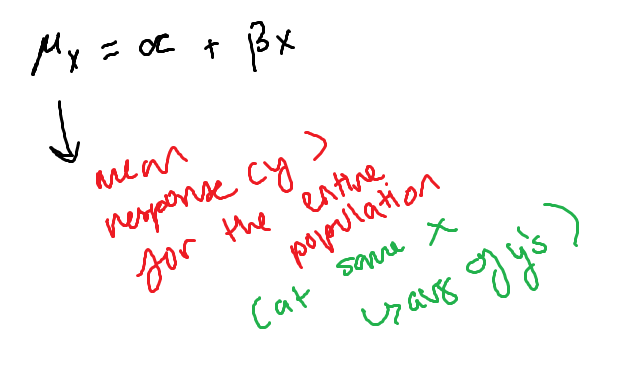 μy = α + βx
mean
response (y)
for the entire
population
(at same x
avg of y's)